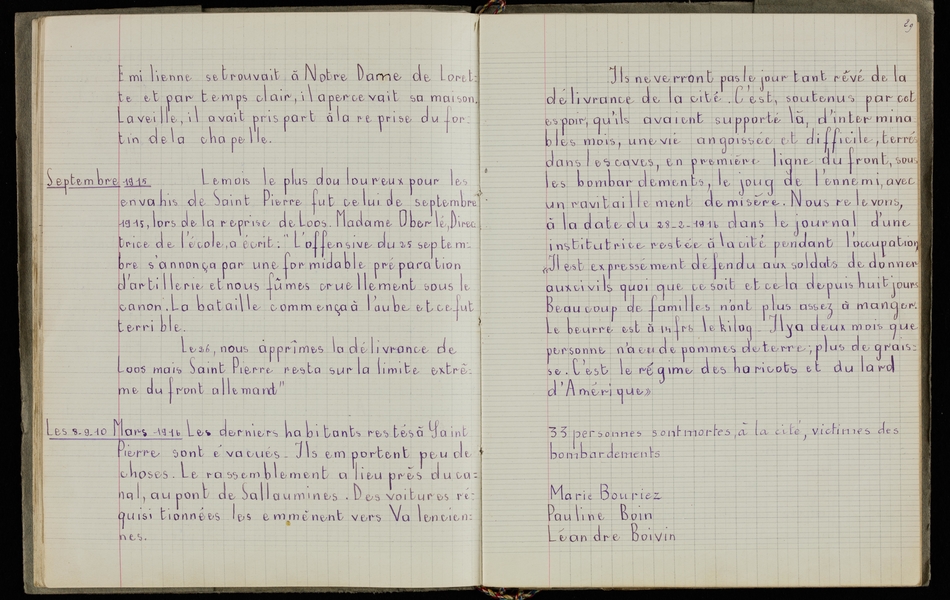 Emilienne se trouvait à Notre Dame de Loret-
te et par temps clair, il apercevait sa maison.
La veille, il avait pris part à la reprise du for-
tin de la chapelle.
Septembre 1915. Le mois le plus douloureux pour les
envahis de Saint Pierre fut celui de septembre
1915, lors de la reprise de Loos. Madame Oberlé, Direc
trice de l'école, a écrit: "L'offensive du 25 septem-
bre s'annonça par une formidable préparation
d'artillerie et nous fûmes cruellement sous le
canon. La bataille commença à l'aube et ce fut
terrible.
Le 26, nous apprîmes la délivrance de
Loos mais Saint Pierre resta sur la limite extrê-
me du front allemand"
Les 8-9.10 Mars 1916 Les derniers habitants restés à Saint
Pierre sont évacués. Ils emportent peu de
choses. Le rassemblement a lieu près du ca-
nal, au pont de Sallaumines. Des voitures ré-
quisitionnées les emmènent vers Valencien-
nes.
29
Ils ne verront pas le jour tant rêvé de la
délivrance de la cité. C'est, soutenus par cet
espoir, qu'ils avaient supporté là, d'intermina
bles mois, une vie angoissée et difficile, terrés
dans les caves, en première ligne du front, sous
les bombardements, le joug de l'ennemi, avec
un ravitaillement de misère. Nous relevons,
à la date du 28-2-1916 dans le journal d'une
institutrice restée à la cité pendant l'occupation
«Il est expressément défendu aux soldats de donner
aux civils quoi que ce soit et cela depuis huit jours
Beaucoup de familles n'ont plus assez à manger.
Le beurre est à frs le kilog. Il y a deux mois que
personne n'a eu de pommes de terre; plus de grais-
se. C'est le régime des haricots et du lard
d'Amérique»
33 personnes sont mortes, à la cité, victimes des
bombardements
Marie Bouriez
Pauline Boin
Léandre Boivin